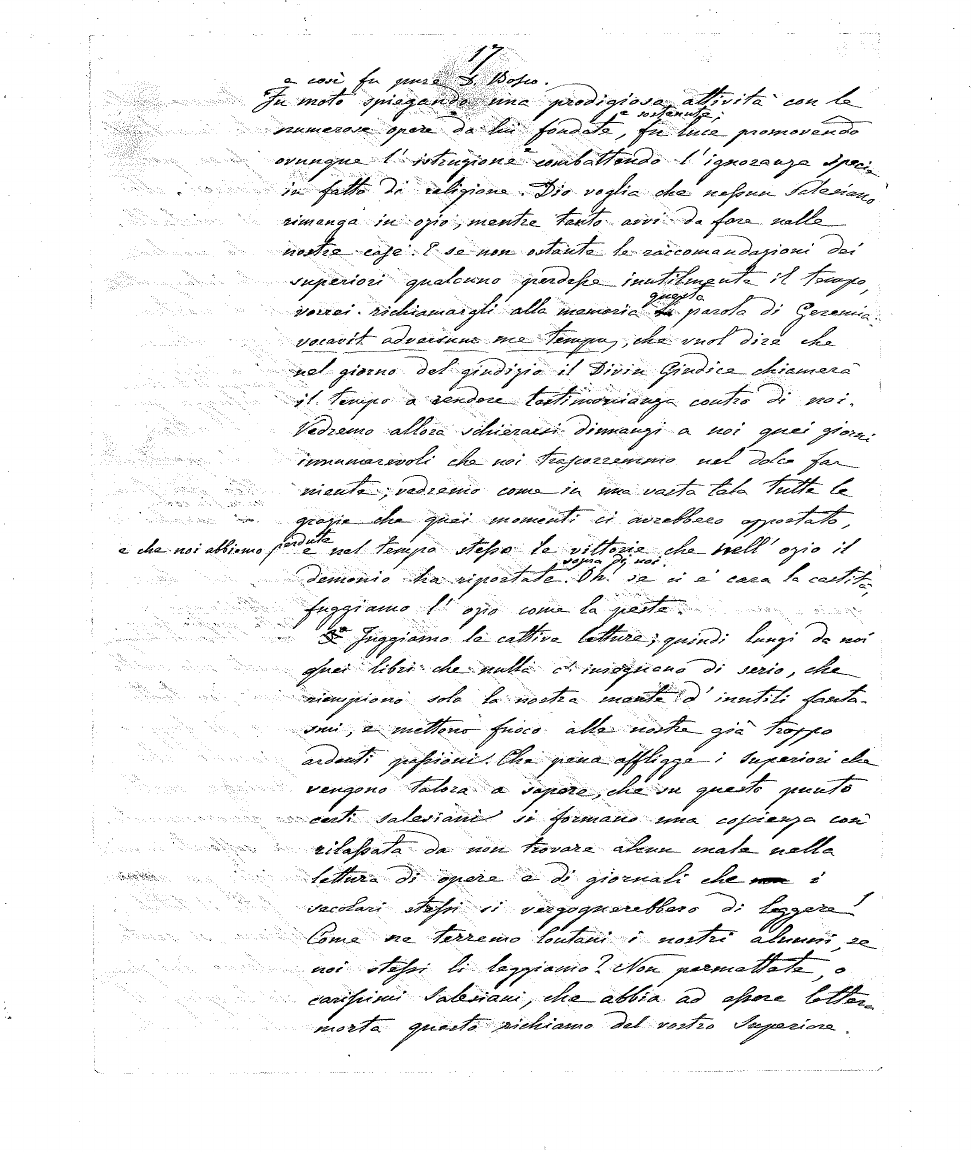 17
e così fu pure D. Bosco.
Fu moto spiegando una prodigiosa attività con le
e sostenute,
numerose opere da lui fondate, fu luce promovendo
ovunque l'istruzione e combattendo l'ignoranza specie
in fatto di religione. Dio voglia che nessun Salesiano
rimanga in ozio, mentre tanto avvi da fare nelle
nostre case. E se non ostante le raccomandazioni dei
superiori qualcuno perdesse inutilmente il tempo,
questa
vorrei richiamargli alla memoria la parola di Geremia:
vocavit adversum me tempus, che vuol dire che
nel giorno del giudizio il Divin Giudice chiamerà
il tempo a rendere testimonianza contro di noi.
Vedremo allora schierarsi dinnanzi a noi quei giorni
innumerevoli che noi trascorremmo nel dolce far
niente; vedremo come in una vasta tela tutte le
grazie che quei momenti ci avrebbero apportato,
e che noi abbiamo perdute e nel tempo stesso le vittorie che nell'ozio il
sopra di noi.
demonio ha riportate. Oh! se ci è cara la castità,
fuggiamo l'ozio come la peste.
Fuggiamo le cattive letture; quindi lungi da noi
quei libri che nulla c'insegnano di serio, che
riempiono solo la nostra mente d'inutili fanta-
smi, e mettono fuoco alle nostre già troppo
ardenti passioni. Che pena affligge i Superiori che
vengono talora a sapere, che su questo punto
certi salesiani si formano una coscienza così
rilassata da non trovare alcun male nella
lettura di opere e di giornali che non i
secolari stessi si vergognerebbero di leggere!
Come ne terremo lontani i nostri alunni, se
noi stessi li leggiamo? Non permettete, o
carissimi Salesiani, che abbia ad essere lettera
morta questo richiamo del vostro Superiore.